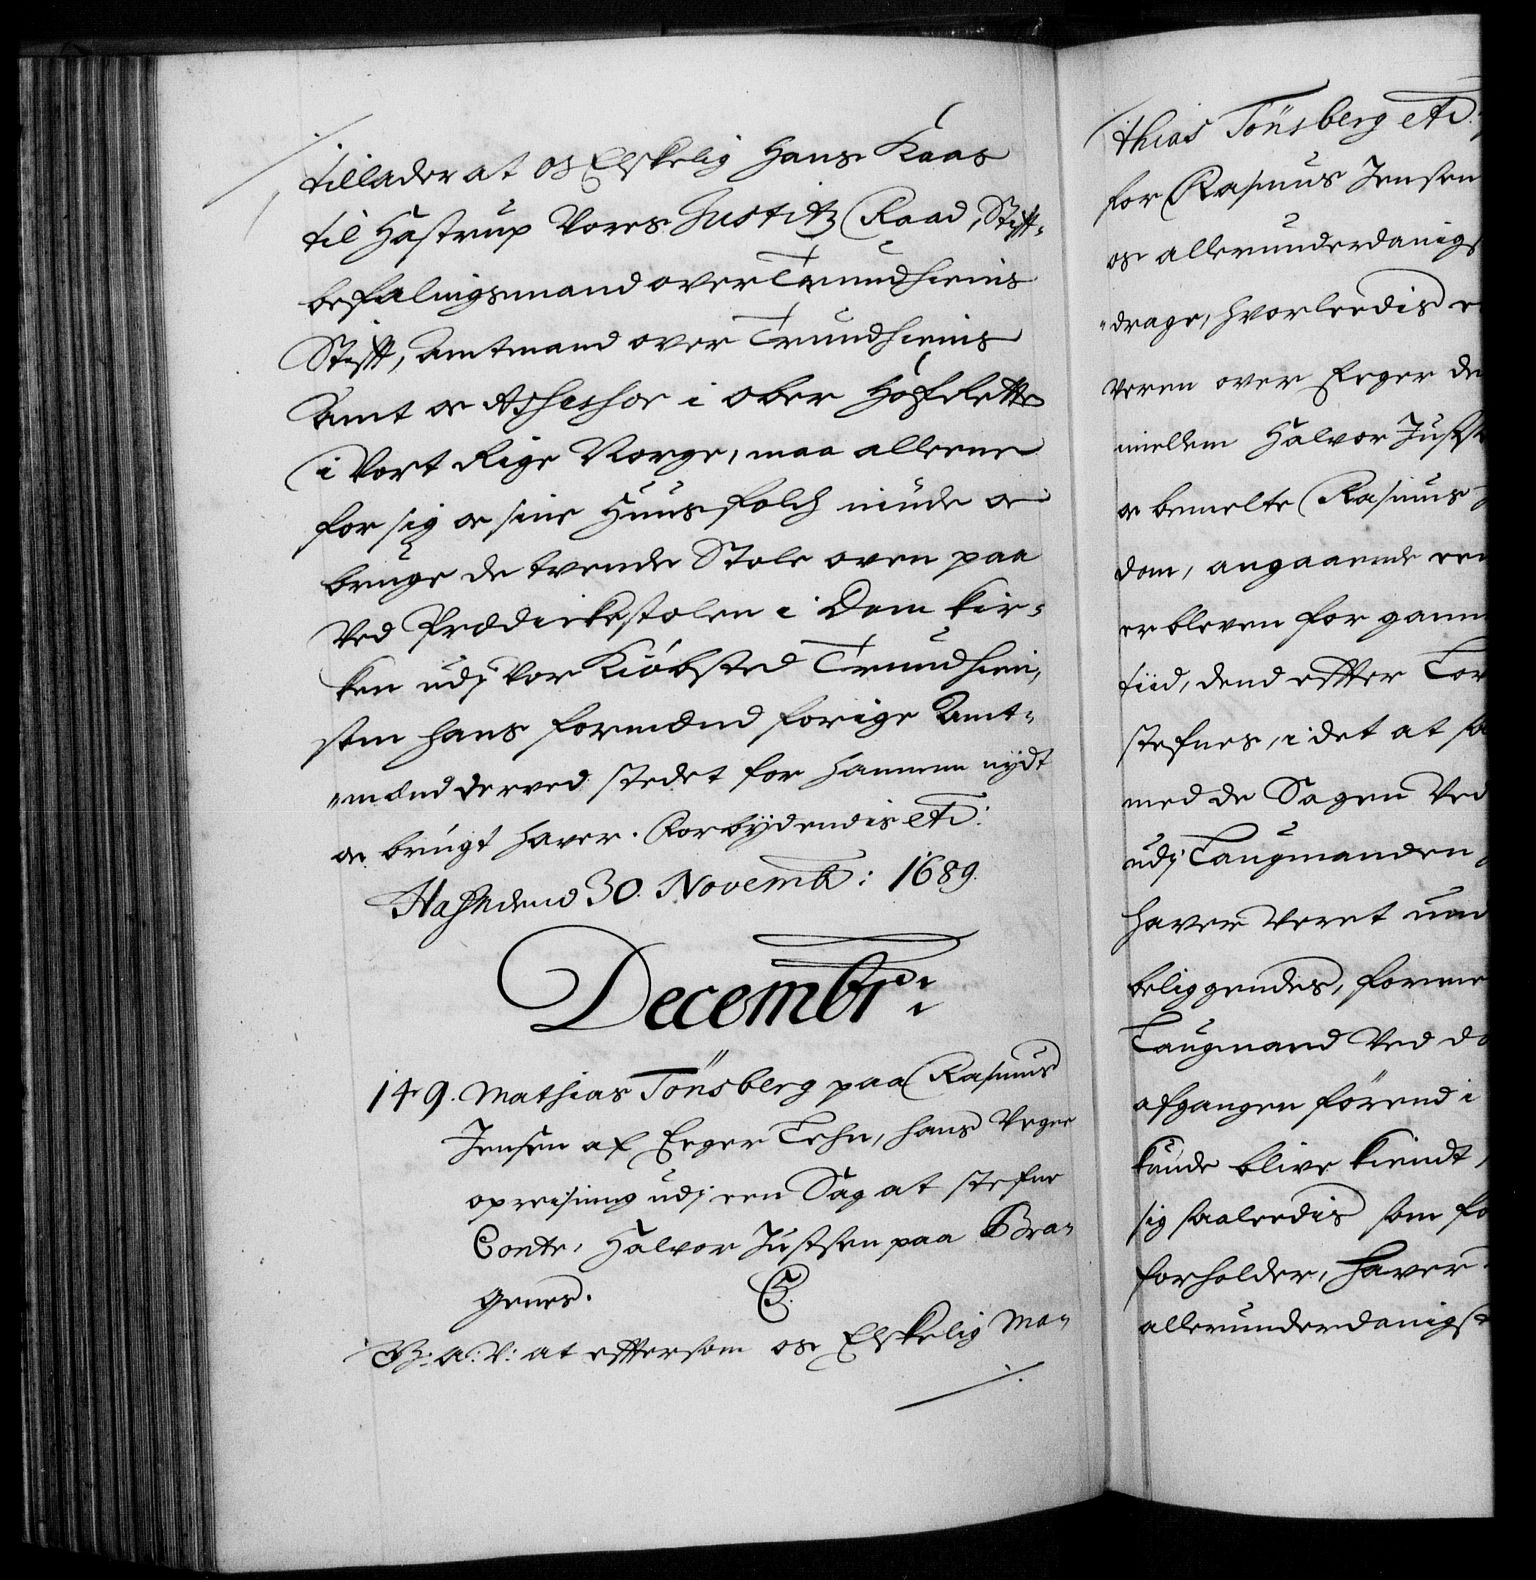 tillader at os Elskelig Hans Kaas
til Hastrup Vores Justitz Raad, Stift-
befalingsmand over Trundhiems
Stift, Amtmand over Trundhiems
Amt oc Assessor i ober Hofrette
i Vort Rige Norge, maa alleene
for sig oc sine Huusfolch niude oc
bruge de tvende Stole oven paa
Ved Prædickestolen i Dom kir-
ken udj Vor Kiöbsted Trundhiem,
som hans formænd forige Amt-
mænd der ved stedet for hannem nydt
oc brugt haver. Forbydendis etc:
Hafn dend 30. Novemb: 1689.
Decembr:
149. Mathias Tönsberg paa Rasmus
Jensen af Eeger Lehn, hans Vegne
opreisning udj een Sag at stefne
Contr. Halvor Justsen paa Bra-
genes.
G: a: V: at eftersom os Elskelig Ma-
thias Tönsberg etc.
for Rasmus Jensen
os allerunderdanigst
drage, hvorleedis
Veren over Eeger
mellem Halvor Justs
oc bemelte Rasmus
dom, angaaende een
er bleven for gamm
tiid, dend effter Lov
stefnes, i det at
med de Sagen Ved
udj Laugmanden
haver Veret und
beliggendes, forme
Laugmand Ved
afgangen förend i
kunde blive kiendt,
sig saaleedis som
forholder, haver
allerunderdanigst